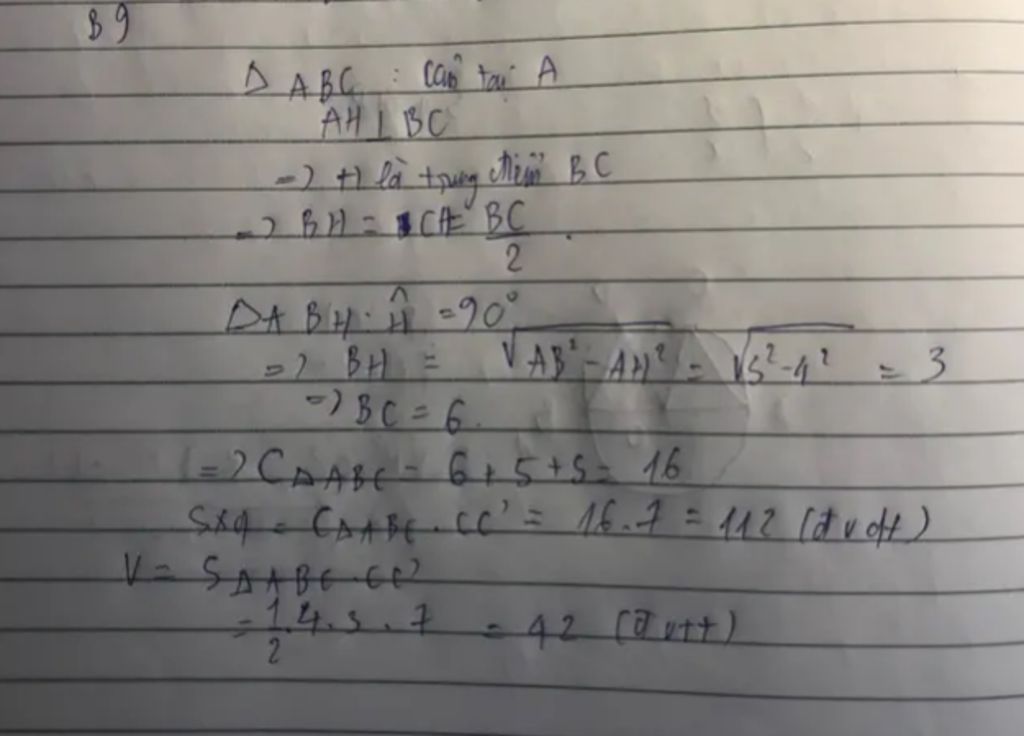 B9
Δ ABC : cân tại A
AH ⊥ BC
=> H là trung điểm BC
=> BH = CH = BC/2.
Δ ABH : Ĥ = 90°
=> BH = √AB² - AH² = √5² - 4² = 3
=> BC = 6.
=> CΔABC = 6 + 5 + 5 = 16
Sxq = CΔABC . CC' = 16.7 = 112 (đvdt)
V = SΔABC . CC'
= 1/2 .4.3.7 = 42 (đvtt)